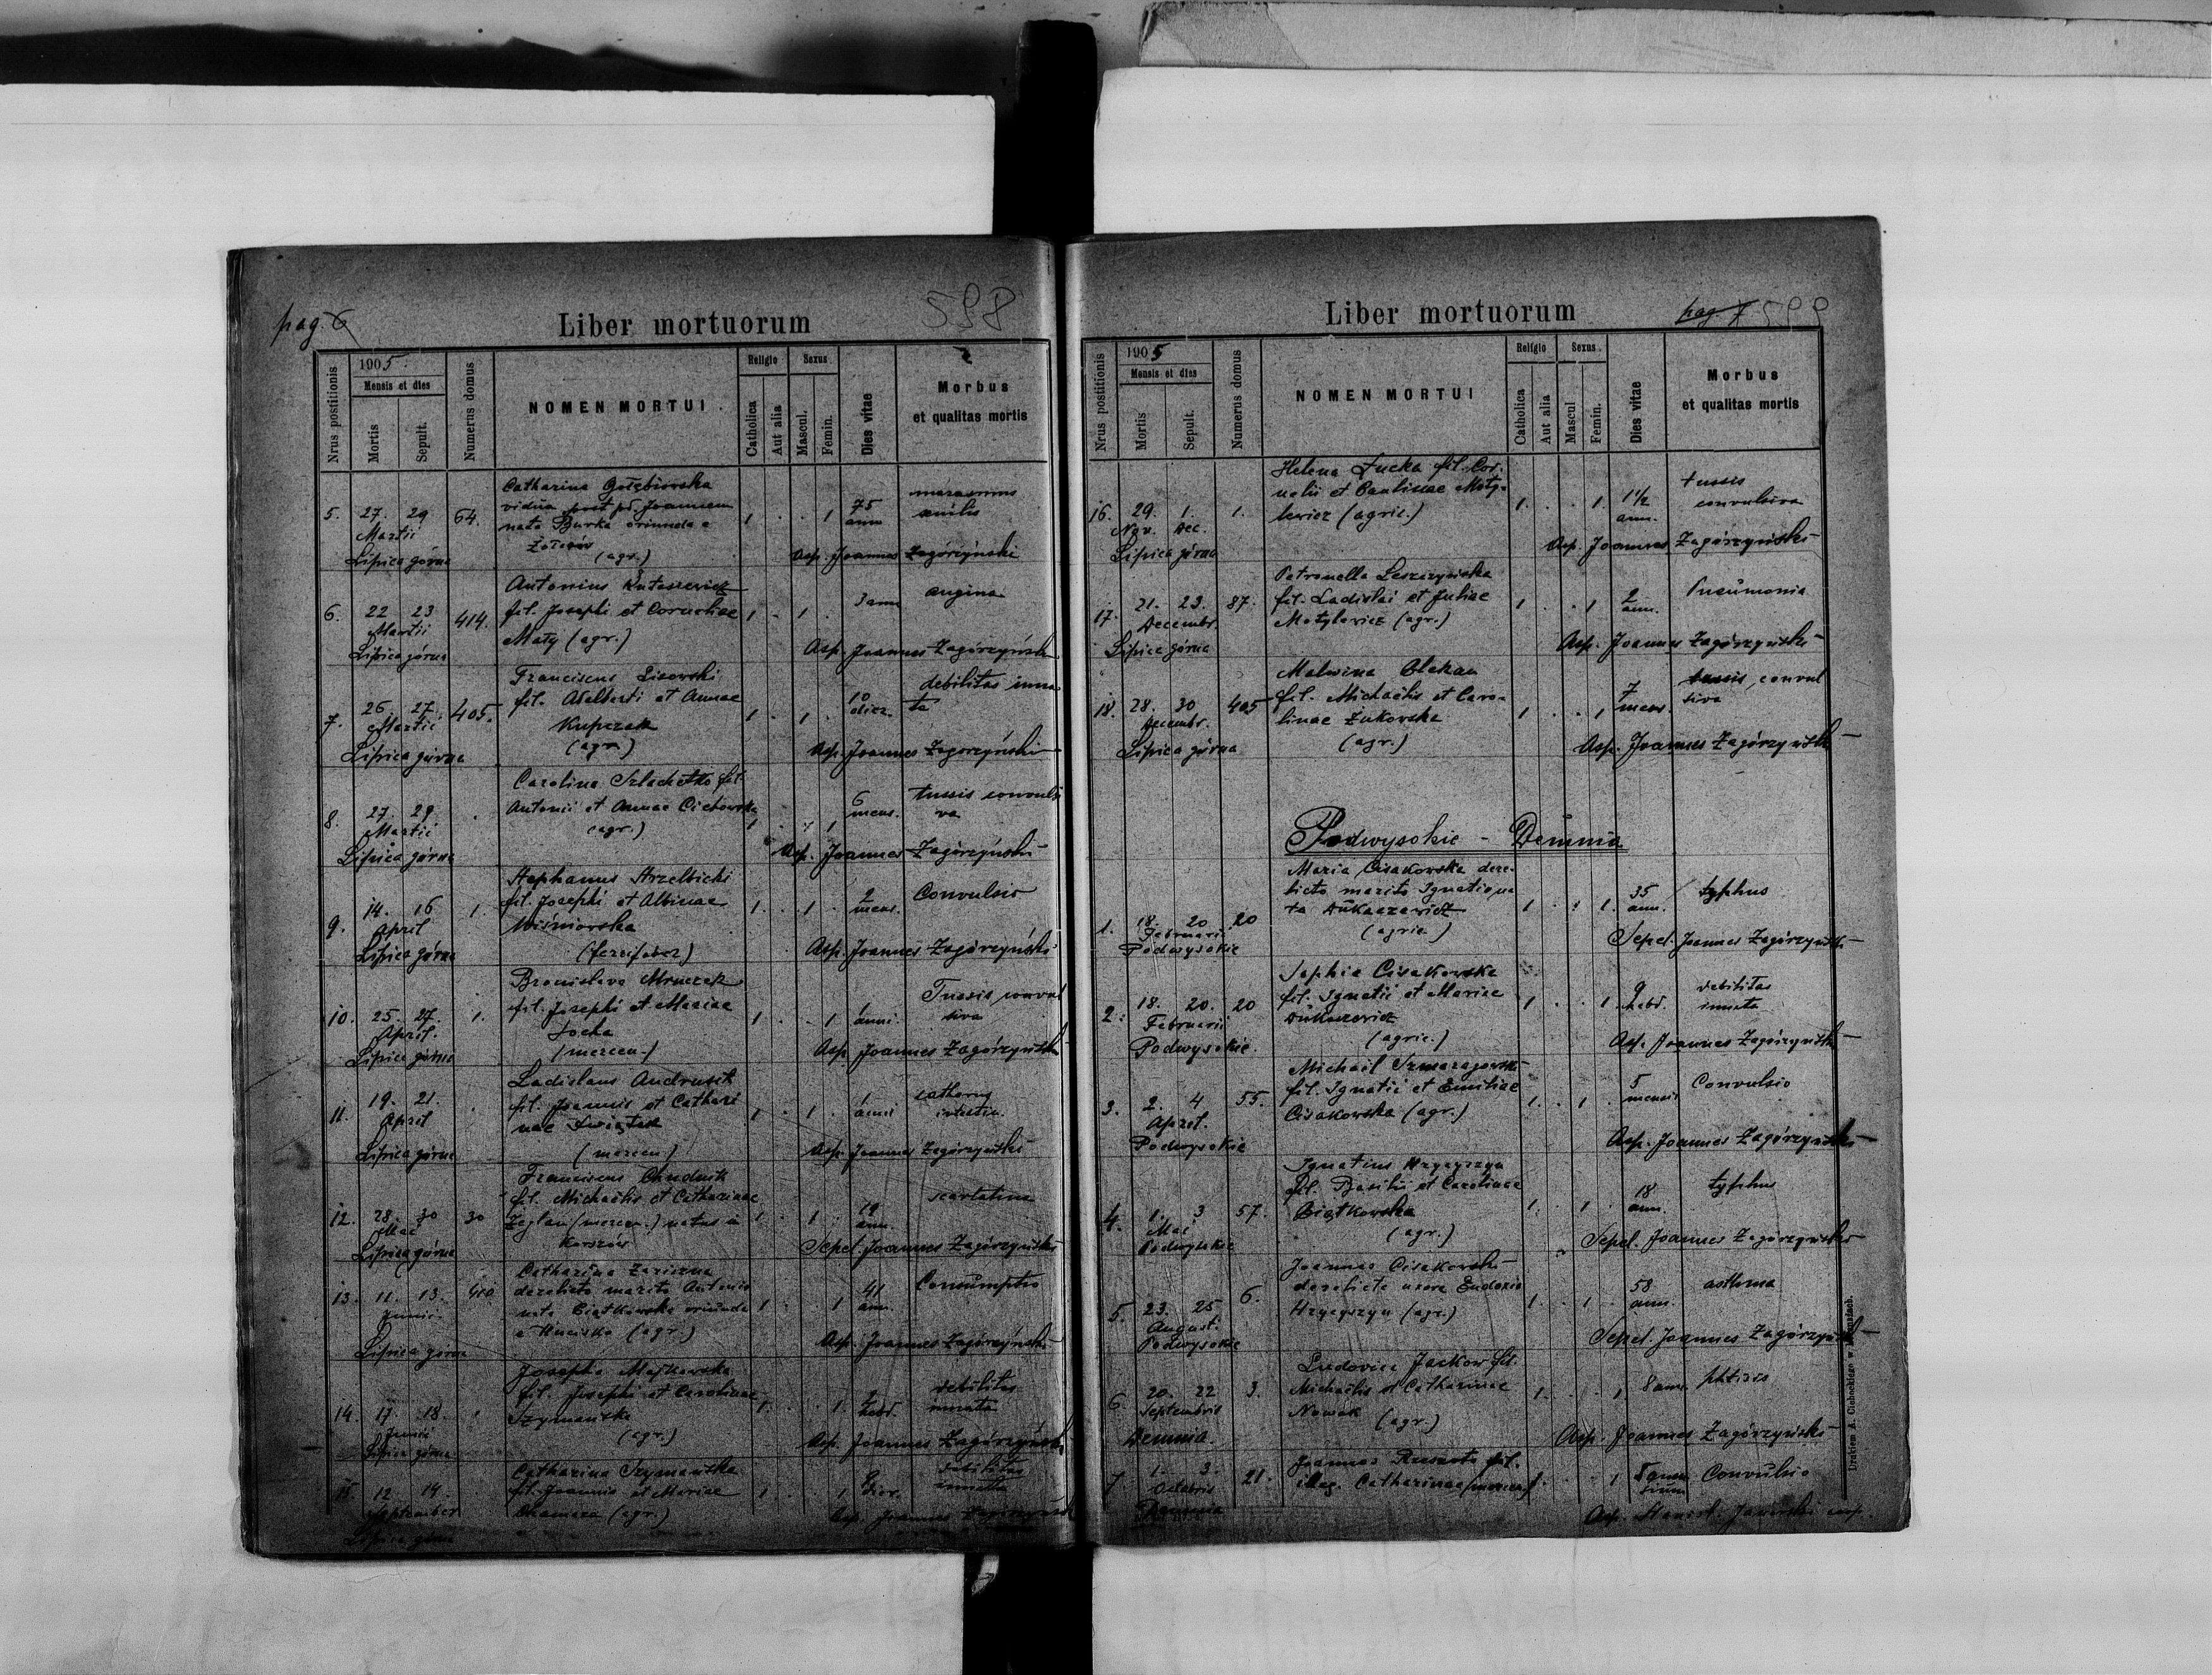 pag. 6
Liber mortuorum
598
Nrus postitionis
1905
Mensis et dies
Mortis
Sepult.
Numerus domus
NOMEN MORTUI
Religio
Catholica
Aut alia
Sexus
Mascul.
Femin.
Dies vitae
Morbus
et qualitas mortis
5. 27. 29 64.
Martii
Lipica górna
Catharina Gołębiowska
vidua post pd. Joannem
nata Burka oriunda e
(agr.)
1 . . 1
75
ann
marasmus
senilis
Asp. Joannes Zagórzyński
6. 22 23 414.
Martii
Lipica górna
Antonius
fil. Josephi et Corneliae
Maty (agr.)
1 . 1 .
3 ann
angina
Asp. Joannes Zagórzyński
7. 26. 27. 405.
Martii
Lipica górna
Franciscus Lisowski
fil. Adalberti et Annae
Kupczak
(agr.)
1 . 1 .
10
dier.
debilitas inna
ta
Asp. Joannes Zagórzyński
8. 27. 29.
Martii
Lipica górna
Carolina Szlachetko fil.
Antonii et Annae Cichowska
(agr.)
1 . . 1
6
mens.
tussis convulsi
va
Asp. Joannes Zagórzyński
9. 14. 16 1.
April
Lipica górna
Stephanus Strzelbicki
fil. Josephi et Albinae
Wiśniowska
(ferrifaber)
1 . 1 .
2
mens.
Convulsio
Asp. Joannes Zagórzyński
10. 25. 27. 1.
April.
Lipica górna
Bronislava Mruczek
fil. Josephi et Mariae
Socha
(mercen.)
1 . . 1
1
anni.
Tussis convul
siva
Asp. Joannes Zagórzyński
11. 19. 21.
April
Lipica górna
Ladislaus Andrusik
fil. Joannis et Cathari
nae Świątek
(mercen)
1 . 1 .
1
anni
catharus
intestin.
Asp. Joannes Zagórzyński
12. 28. 30 30
Mai
Lipica górna
Franciscus Chudzik
fil. Michaëlis et Catharinae
(mercen.) natus in
Korszów
1 . 1 .
19
ann.
scarlatina
Sepel. Joannes Zagórzyński
13. 11. 13. 410
Junii.
Lipica górna
Catharina
derelicto marito Antonio
nata Biątkowska oriunda
e Huciska (agr.)
1 . . 1
41
ann.
Consumptio
Asp. Joannes Zagórzyński
14. 17. 18.
Junii
Lipica górna
Josepha Majkowska
fil. Josephi et Carolinae
Szymańska
(agr.)
1 . . 1
2
hebd.
debilitas
innata
Asp. Joannes Zagórzyński
15. 12 14.
September
Lipica górna
Catharina Szymańska
fil. Joannis et Mariae
(agr.)
1 . . 1
8
dier.
debilitas
innata
Asp. Joannes Zagórzyński
Liber mortuorum
pag 7
599
Nrus postitionis
1905
Mensis et dies
Mortis
Sepult.
Numerus domus
NOMEN MORTUI
Religio
Catholica
Aut alia
Sexus
Mascul
Femin.
Dies vitae
Morbus
et qualitas mortis
16. 29. 1. 1.
Nov. Dec.
Lipica górna
Helena Łucka fil. Cor-
nelii et Paulinae Moty-
lewicz (agric.)
1. . . 1.
1 1/2
ann.
tussis
convulsiva
Asp. Joannes Zagórzyński
17. 21. 23. 87.
Decembr.
Lipica górna
Petronella Leszczyńska
fil. Ladislai et Juliae
Motylewicz (agr.)
1 . . 1
2
ann.
Pneumonia
Asp. Joannes Zagórzyński
18. 28. 30 405
Decembr.
Lipica górna
Malwina
fil. Michaëlis et Caro-
linae Żukowska
(agr.)
1 . . 1
7
mens.
tussis, convul
siva
Asp. Joannes Zagórzyński
Podwysokie - Demnia
1. 18. 20 20
Februarii
Podwysokie
Maria Cisakowska dere-
licto marito Ignatio na
ta Łukaszewicz
(agric.)
1 . . 1.
35
ann.
typhus
Sepel. Joannes Zagórzyński
2. 18. 20. 20
Februarii
Podwysokie.
Sophia Cisakowska
fil. Ignatii et Mariae
Łukaszewicz
(agric.)
1 . . 1.
9
hebd.
debilitas
innata
Asp. Joannes Zagórzyński
3. 2. 4 55.
April.
Podwysokie
Michaël Szmaragowski
fil. Ignatii et Emiliae
Cisakowska (agr.)
1. . 1 .
5
mensis
Convulsio
Asp. Joannes Zagórzyński
4. 1. 3 57.
Mai
Podwysokie
Ignatius Hrycyszyn
fil. Basilii et Carolinae
Biątkowska
(agr.)
1. . 1 .
18
ann.
typhus
Sepel. Joannes Zagórzyński
5. 23. 25 6.
Augusti
Podwysokie
Joannes Cisakowski
derelicta uxore Eudoxia
Hrycyszyn (agr.)
1. . 1 .
58
ann.
asthma
Sepel. Joannes Zagórzyński
6. 20. 22 3.
Septembris
Demnia.
Ludovica Jackow fil.
Michaëlis et Catharinae
Nowak
(agr.)
1. . . 1
8 ann.
phtisis
Asp. Joannes Zagórzyński
7 1. 3. 21.
Octobris
Demnia
Joannes fil.
illeg. Catharinae (mercen.)
1
5
Convulsio
Asp.
Drukiem A. Cichockiego w